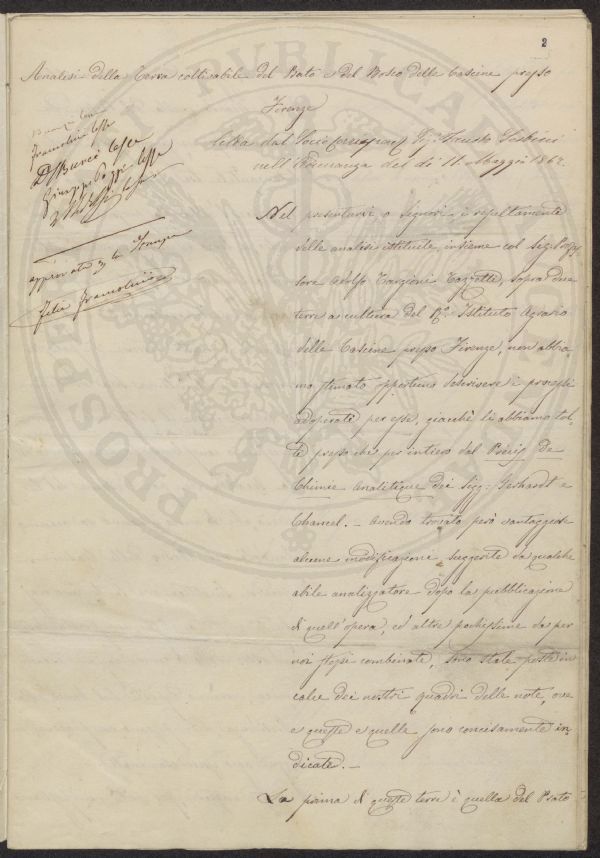 2
Analisi della Terra coltivabile del Prato e del Bosco delle Cascine presso
Firenze
letta dal Socio Corrispond. Sig. Fausto Sestini
nell'Adunanza del dì 11. Maggio 1862.
lesse
Giuseppe Poggi lesse
approvata
Nel presentarvi o Signori i resultamenti
delle analisi istituite, insieme col Sig. Profes
sore Adolfo Targioni Tozzetti, sopra due
terre a cultura del R.o Istituto Agrario
delle Cascine presso Firenze, non abbia,
mo stimato opportuno descrivere i processi
adoperati per esse, giacchè li abbiamo tol,
ti presso che per intiero dal Précis de
Chimie analitique dei Sigg: Gerhardt e
Chancel. — Avendo trovato però vantaggiose
alcune modificazione suggerite da qualche
abile analizzatore dopo la pubblicazione
di quell'opera, ed altre pochissime da per
noi stessi combinate, sono state poste in
calce dei nostri quadri delle note, ove
e queste e quelle sono concisamente in,
dicate. —
La prima di queste terre è quella del Prato
PROSPERITATI PUBLICAE AUGENDAE